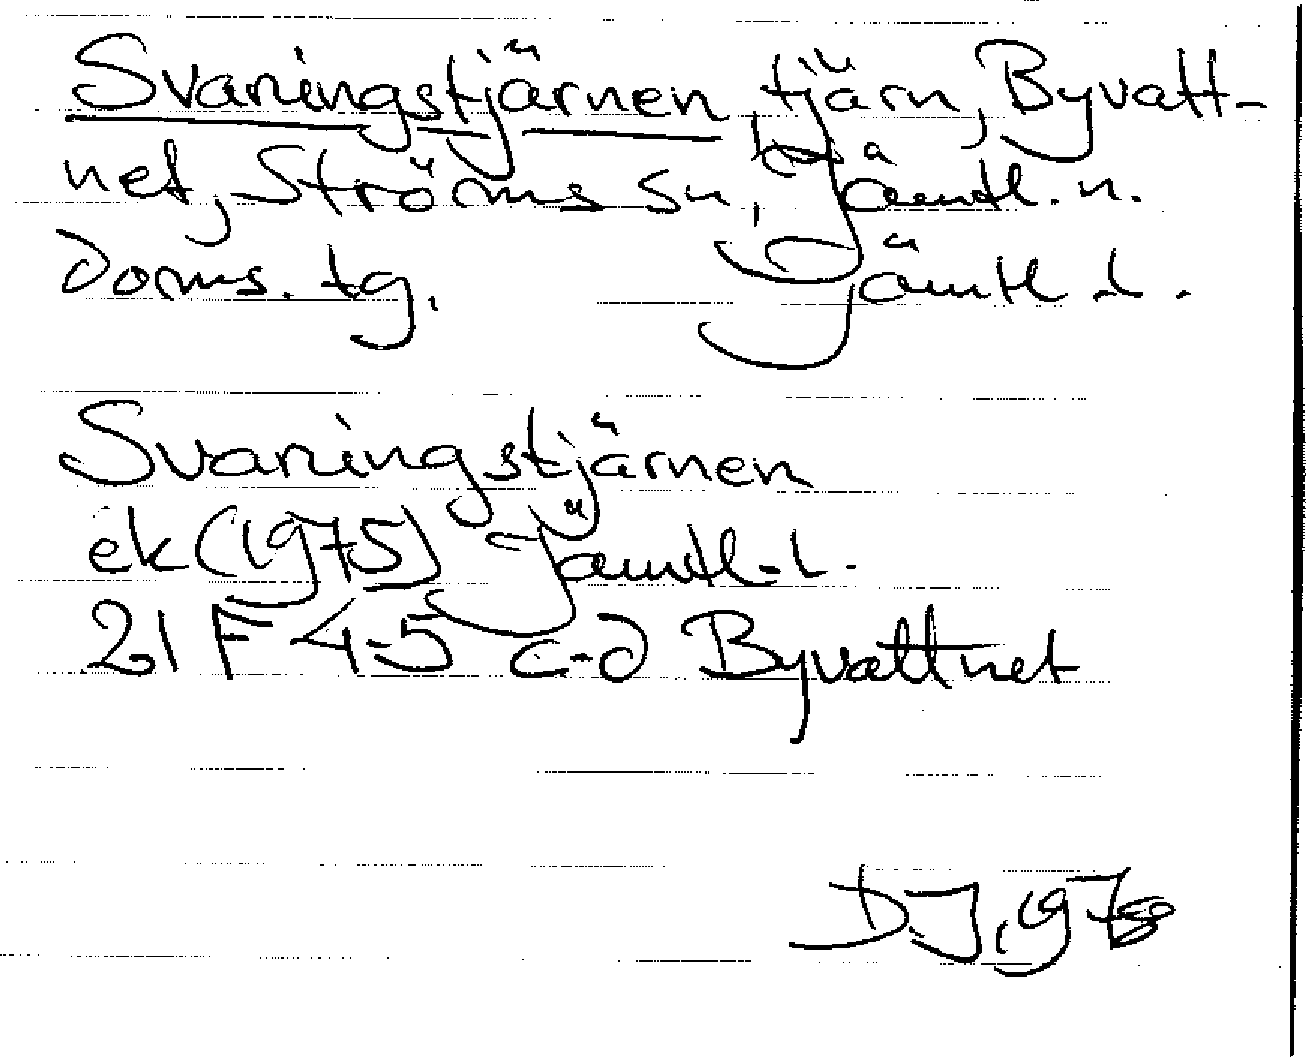 Svaningstjärnen, tjärn, Byvatt-
net, Ströms sn, Jämtl. n.
doms. tg. Jämtl L.
Svaningstjärnen
ek (1975) Jämtl. L.
21 F 4-5 c-d Byvattnet
DJ, 197